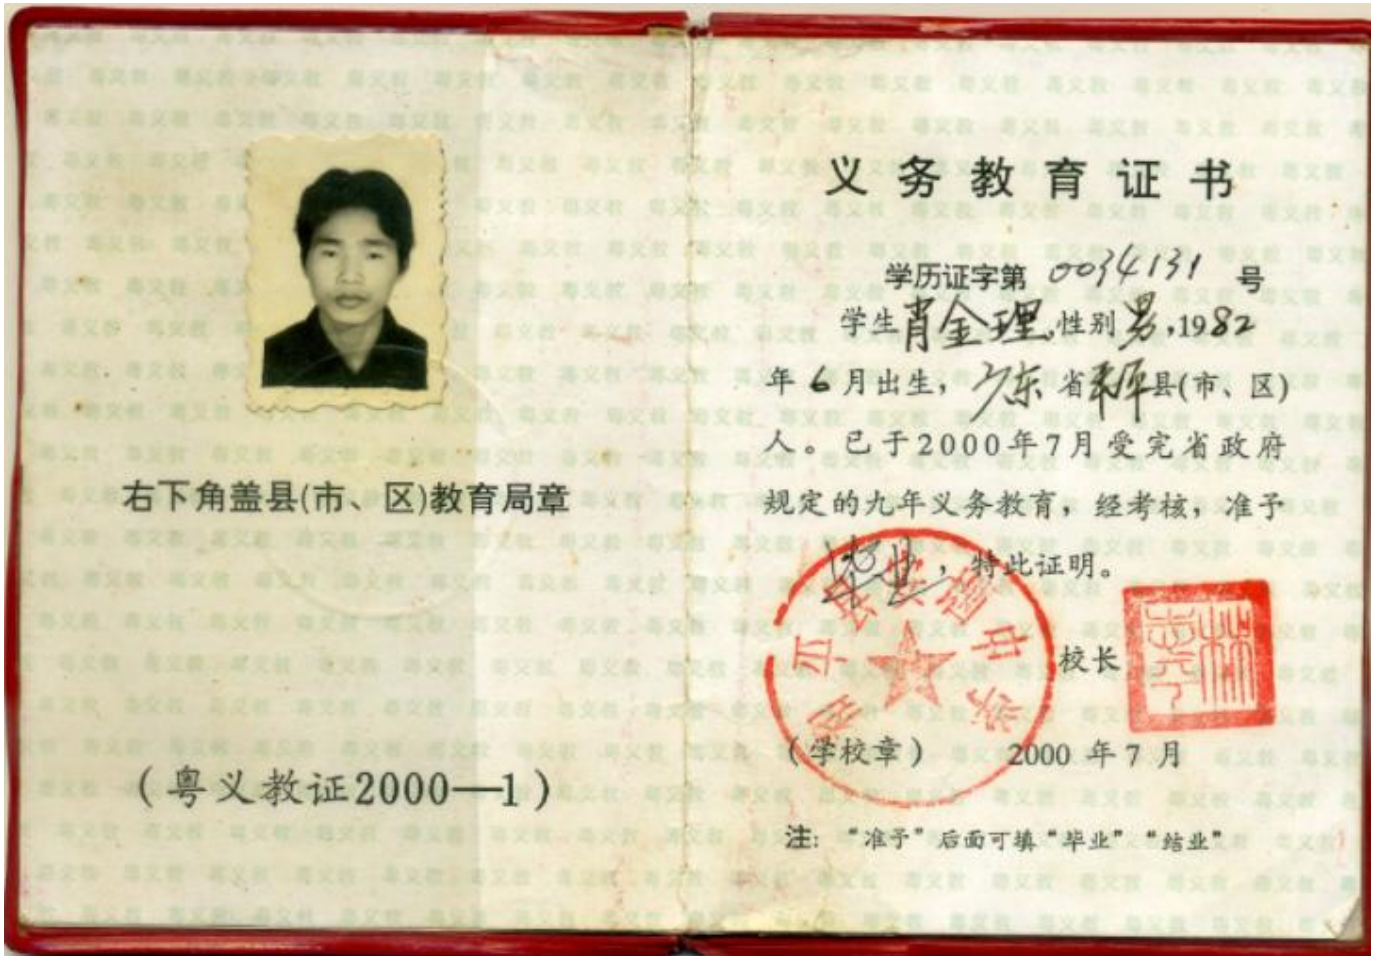 右下角盖县(市、区)教育局章
(粤义教证2000—1)
义务教育证书
学历证字第 0034131 号
学生肖金理,性别男,1982
年6月出生,广东省县(市、区)
人。已于2000年7月受完省政府
规定的九年义务教育,经考核,准予
毕业,特此证明。
校长
(学校章) 2000年7月
注:“准予”后面可填“毕业”“结业”